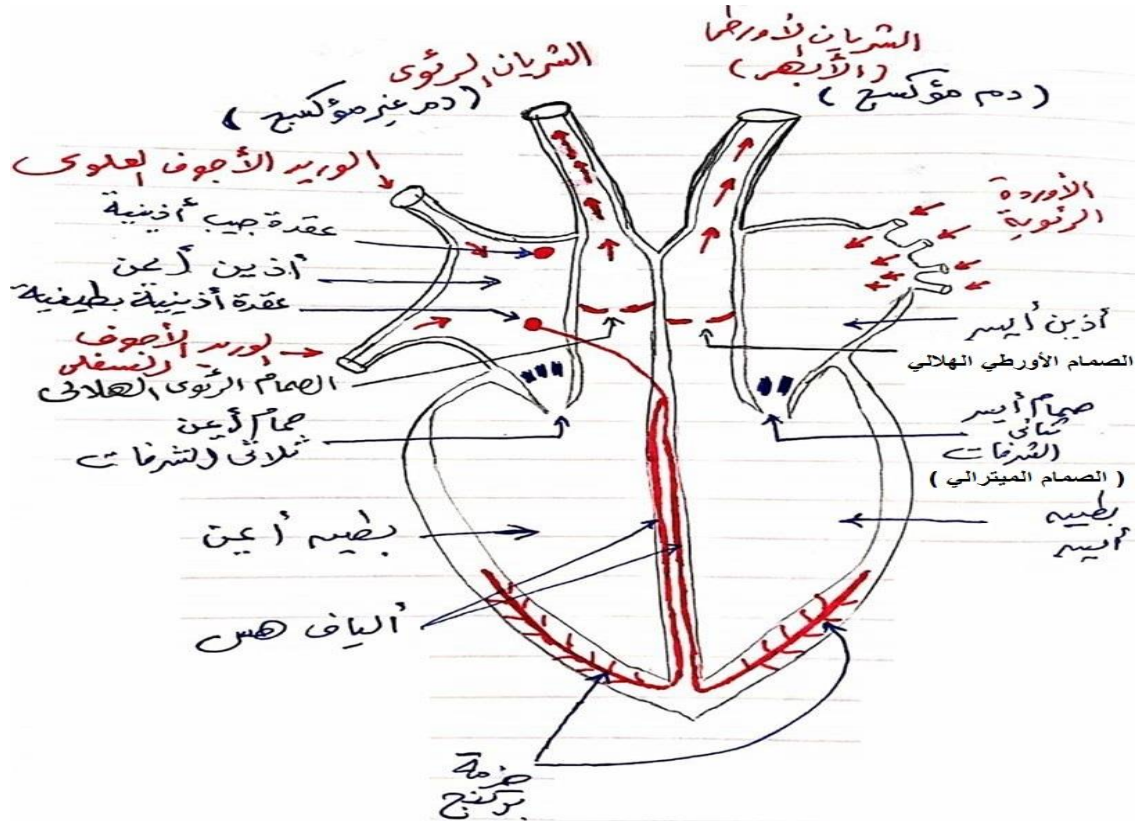 الشريان الأورطى
(الأبهر)
(دم مؤكسج)
الشريان الرئوى
(دم غير مؤكسج)
الوريد الأجوف العلوى
عقدة جيب أذينية
أذين أيمن
عقدة أذينية بطينية
الوريد الأجوف
السفلى
الصمام الرئوى الهلالى
صمام أيمن
ثلاثى الشرفات
بطين أيمن
ألياف هس
حزمة
بركنج
الأوردة
الرئوية
أذين أيسر
الصمام الأورطي الهلالي
صمام أيسر
ثنائى
الشرفات
( الصمام الميترالي )
بطين
أيسر